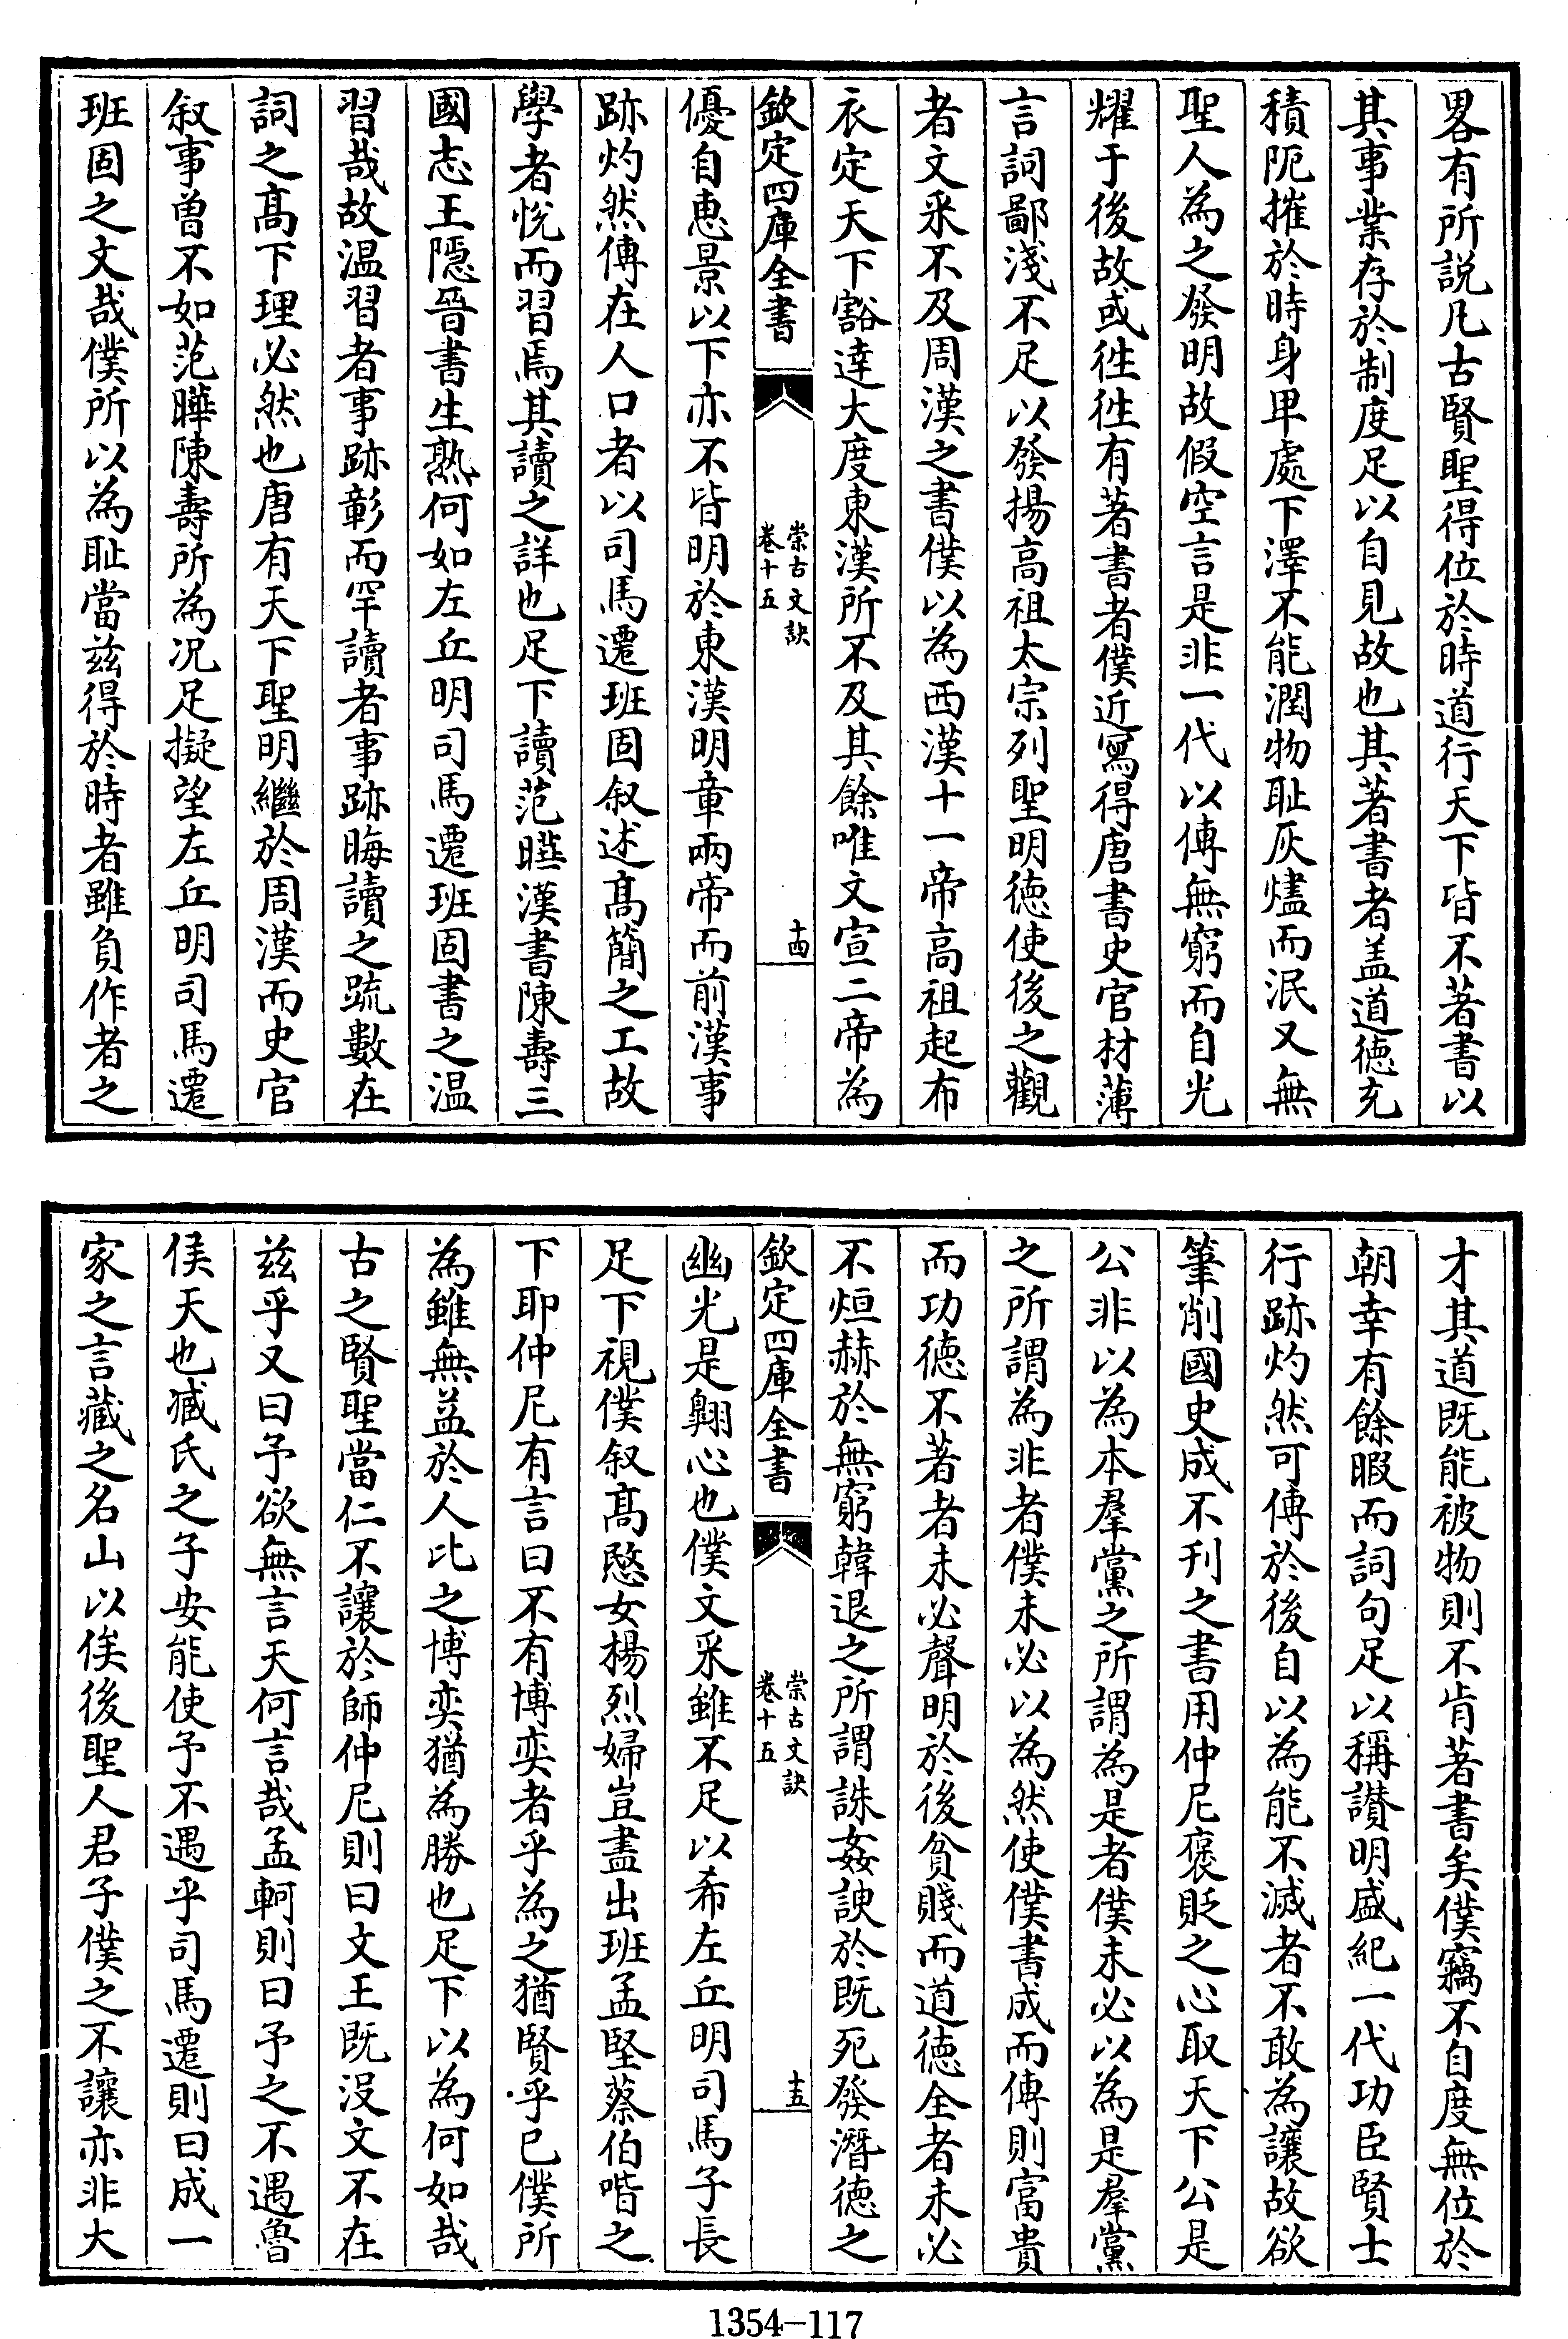 畧有所説凡古賢聖得位於時道行天下皆不著書以
其事業存於制度足以自見故也其著書者盖道徳充
積阨摧於時身卑處下澤不能潤物耻灰燼而泯又無
聖人為之發明故假空言是非一代以傳無窮而自光
耀于後故或徃徃有著書者僕近寫得唐書史官材薄
言詞鄙淺不足以發揚高祖太宗列聖明徳使後之觀
者文采不及周漢之書僕以為西漢十一帝高祖起布
衣定天下豁達大度東漢所不及其餘唯文宣二帝為
欽定四庫全書
崇古文訣
卷十五
十四
優自惠景以下亦不皆明於東漢明章兩帝而前漢事
跡灼然傳在人口者以司馬遷班固叙述髙簡之工故
學者悅而習焉其讀之詳也足下讀范曄漢書陳壽三
國志王隠晉書生熟何如左丘明司馬遷班固書之温
習哉故温習者事跡彰而罕讀者事跡晦讀之疏數在
詞之髙下理必然也唐有天下聖明繼於周漢而史官
叙事曾不如范曄陳壽所為况足擬望左丘明司馬遷
班固之文哉僕所以為耻當兹得於時者雖負作者之
才其道既能被物則不肯著書矣僕竊不自度無位於
朝幸有餘暇而詞句足以稱讃明盛紀一代功臣賢士
行跡灼然可傳於後自以為能不滅者不敢為讓故欲
筆削國史成不刊之書用仲尼褒貶之心取天下公是
公非以為本羣黨之所謂為是者僕未必以為是羣黨
之所謂為非者僕未必以為然使僕書成而傳則富貴
而功徳不著者未必聲明於後貧賤而道徳全者未必
不烜赫於無窮韓退之所謂誅姦諛於既死發潛徳之
欽定四庫全書
崇古文訣
卷十五
十五
幽光是翺心也僕文采雖不足以希左丘明司馬子長
足下視僕叙髙愍女楊烈婦豈盡出班孟堅蔡伯喈之
下耶仲尼有言曰不有博奕者乎為之猶賢乎已僕所
為雖無益於人比之博奕猶為勝也足下以為何如哉
古之賢聖當仁不讓於師仲尼則曰文王既没文不在
兹乎又曰予欲無言天何言哉孟軻則曰予之不遇魯
侯天也臧氏之子安能使予不遇乎司馬遷則曰成一
家之言藏之名山以俟後聖人君子僕之不讓亦非大
1354-117